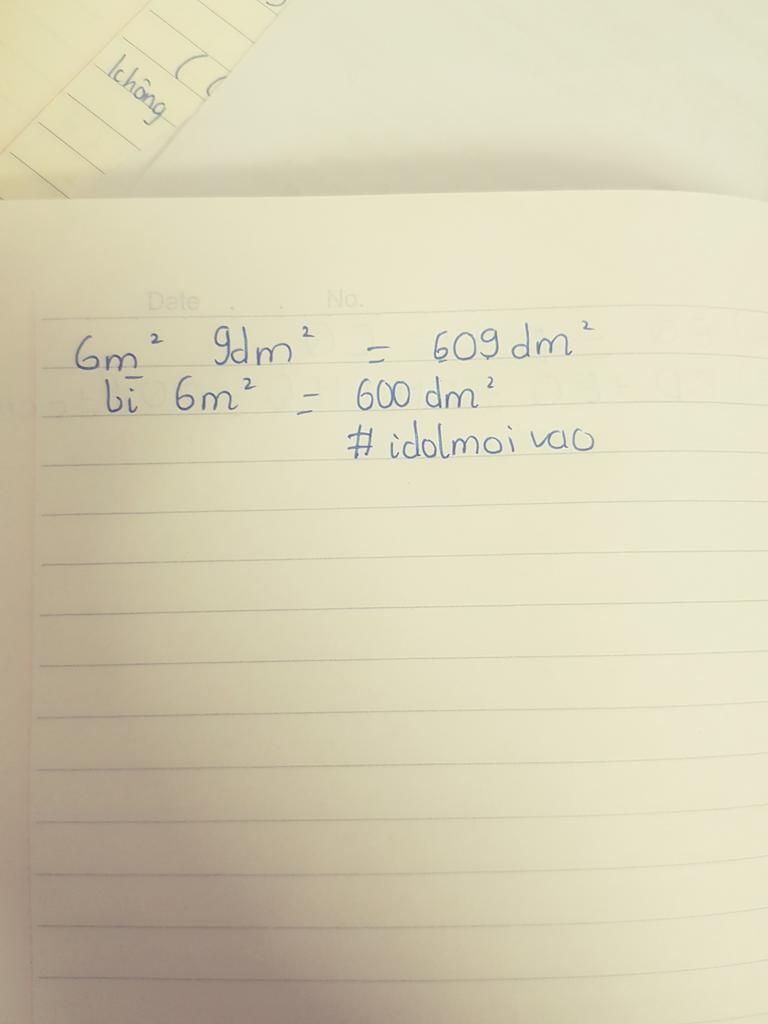 không ( (
Date . . No.
6m² 9dm² = 609 dm²
bì 6m² = 600 dm²
# idolmoi vao